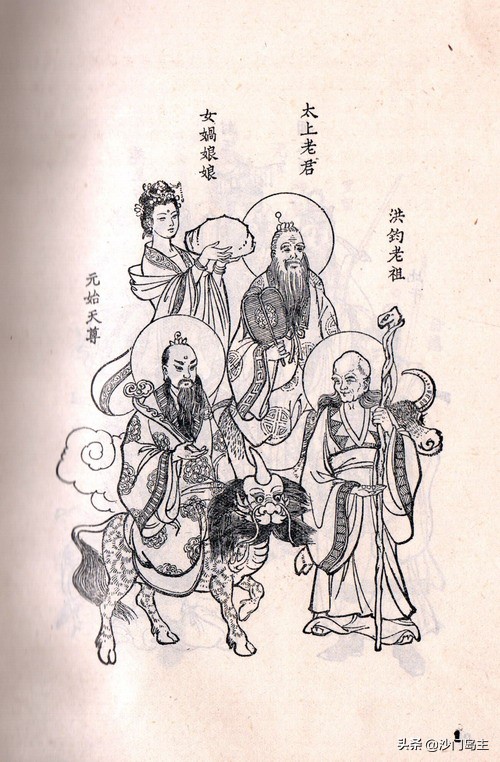 洪鈞老祖
太上老君
女媧娘娘
元始天尊
1
头条 @沙门岛主